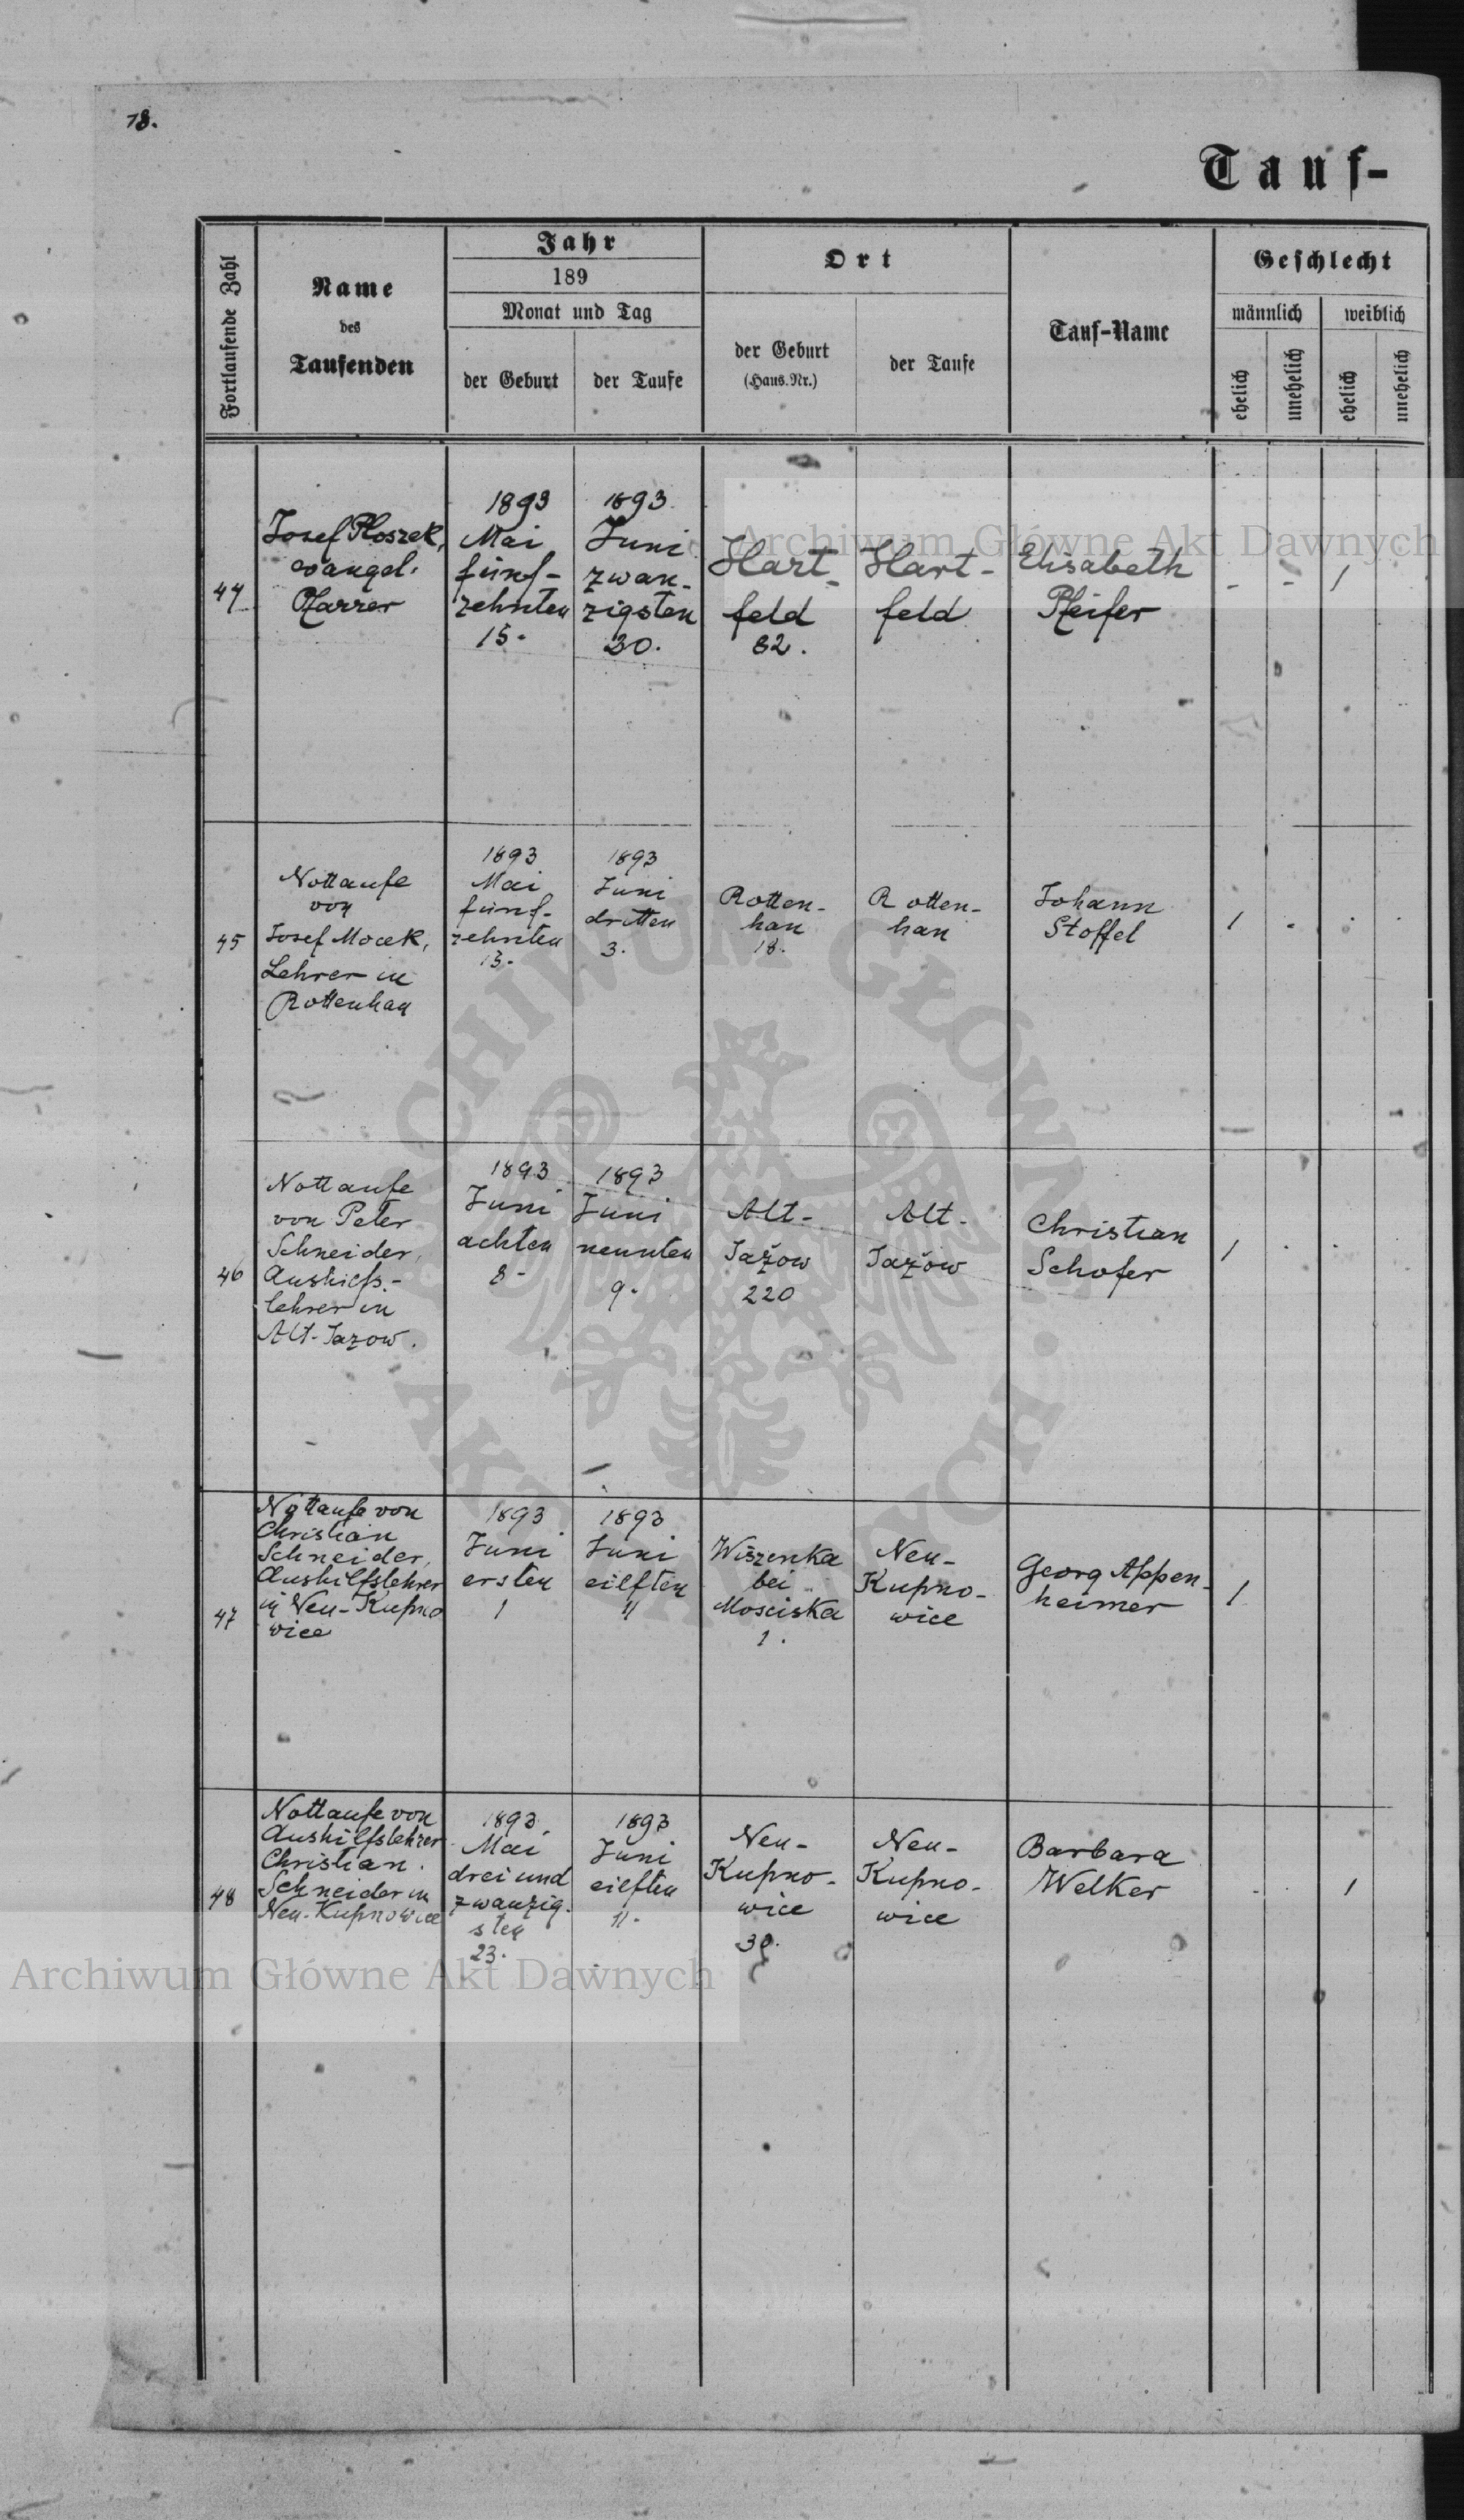 78.
Tauf-
Fortlaufende Zahl
Name
des
Taufenden
Jahr
189
Monat und Tag
der Geburt
der Taufe
Ort
der Geburt
(Haus.Nr.)
der Taufe
Tauf-Name
Geschlecht
männlich
weiblich
ehelich
unehelich
ehelich
unehelich
44
Josef Ploszek,
evangel.
Pfarrer
1893
Mai
fünf-
zehnten
15.
1893.
Juni
zwan-
zigsten
20.
Hart-
feld
82.
Hart-
feld
Elisabeth
Pfeifer
- - 1
45
Nottaufe
von
Josef Mocek,
Lehrer in
Rottenhan
1893
Mai
fünf-
zehnten
15.
1893
Juni
dritten
3.
Rotten-
han
18.
Rotten-
han
Johann
Stoffel
1 - .
46
Nottaufe
von Peter
Schneider,
Aushilfs-
lehrer in
Alt-Jazow.
1893
Juni
achten
8-
1893
Juni
neunten
9.
Alt-
Jažow
220
Alt-
Jažow
Christian
Schofer
1 . .
47
Nottaufe von
Christian
Schneider,
Aushilfslehrer
in Neu-Kupno
wice
1893
Juni
ersten
1
1893
Juni
eilften
11
Wiszenka
bei
Mosciska
1.
Neu-
Kupno-
wice
Georg Appen-
heimer
1
48
Nottaufe von
Aushilfslehrer
Christian
Schneider in
Neu-Kupnowice
1893.
Mai
drei und
zwanzig-
sten
23.
1893
Juni
eilften
11.
Neu-
Kupno-
wice
30.
Neu-
Kupno-
wice
Barbara
Welker
. . 1
Archiwum Główne Akt Dawnych
Archiwum Główne Akt Dawnych
ARCHIWUM GŁÓWNE AKT DAWNYCH